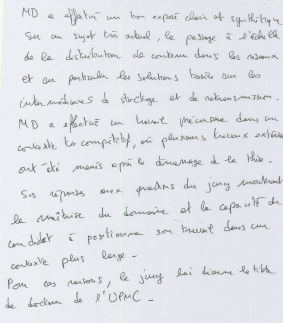 MD a effectué un bon exposé clair et synthétique
sur un sujet très actuel, le passage à l'échelle
de la distribution de contenu dans les réseaux
et en particulier les solutions basées sur les
intermédiaires de stockage et de retransmission.
MD a effectué un travail précurseur dans un
contexte très compétitif, où plusieurs travaux
ont été menés après le démarrage de la thèse.
Ses réponses aux questions du jury montrent
la maîtrise du domaine et la capacité du
candidat à positionner son travail dans un
contexte plus large.
Pour ces raisons, le jury lui donne le titre
de docteur de l'UPMC.